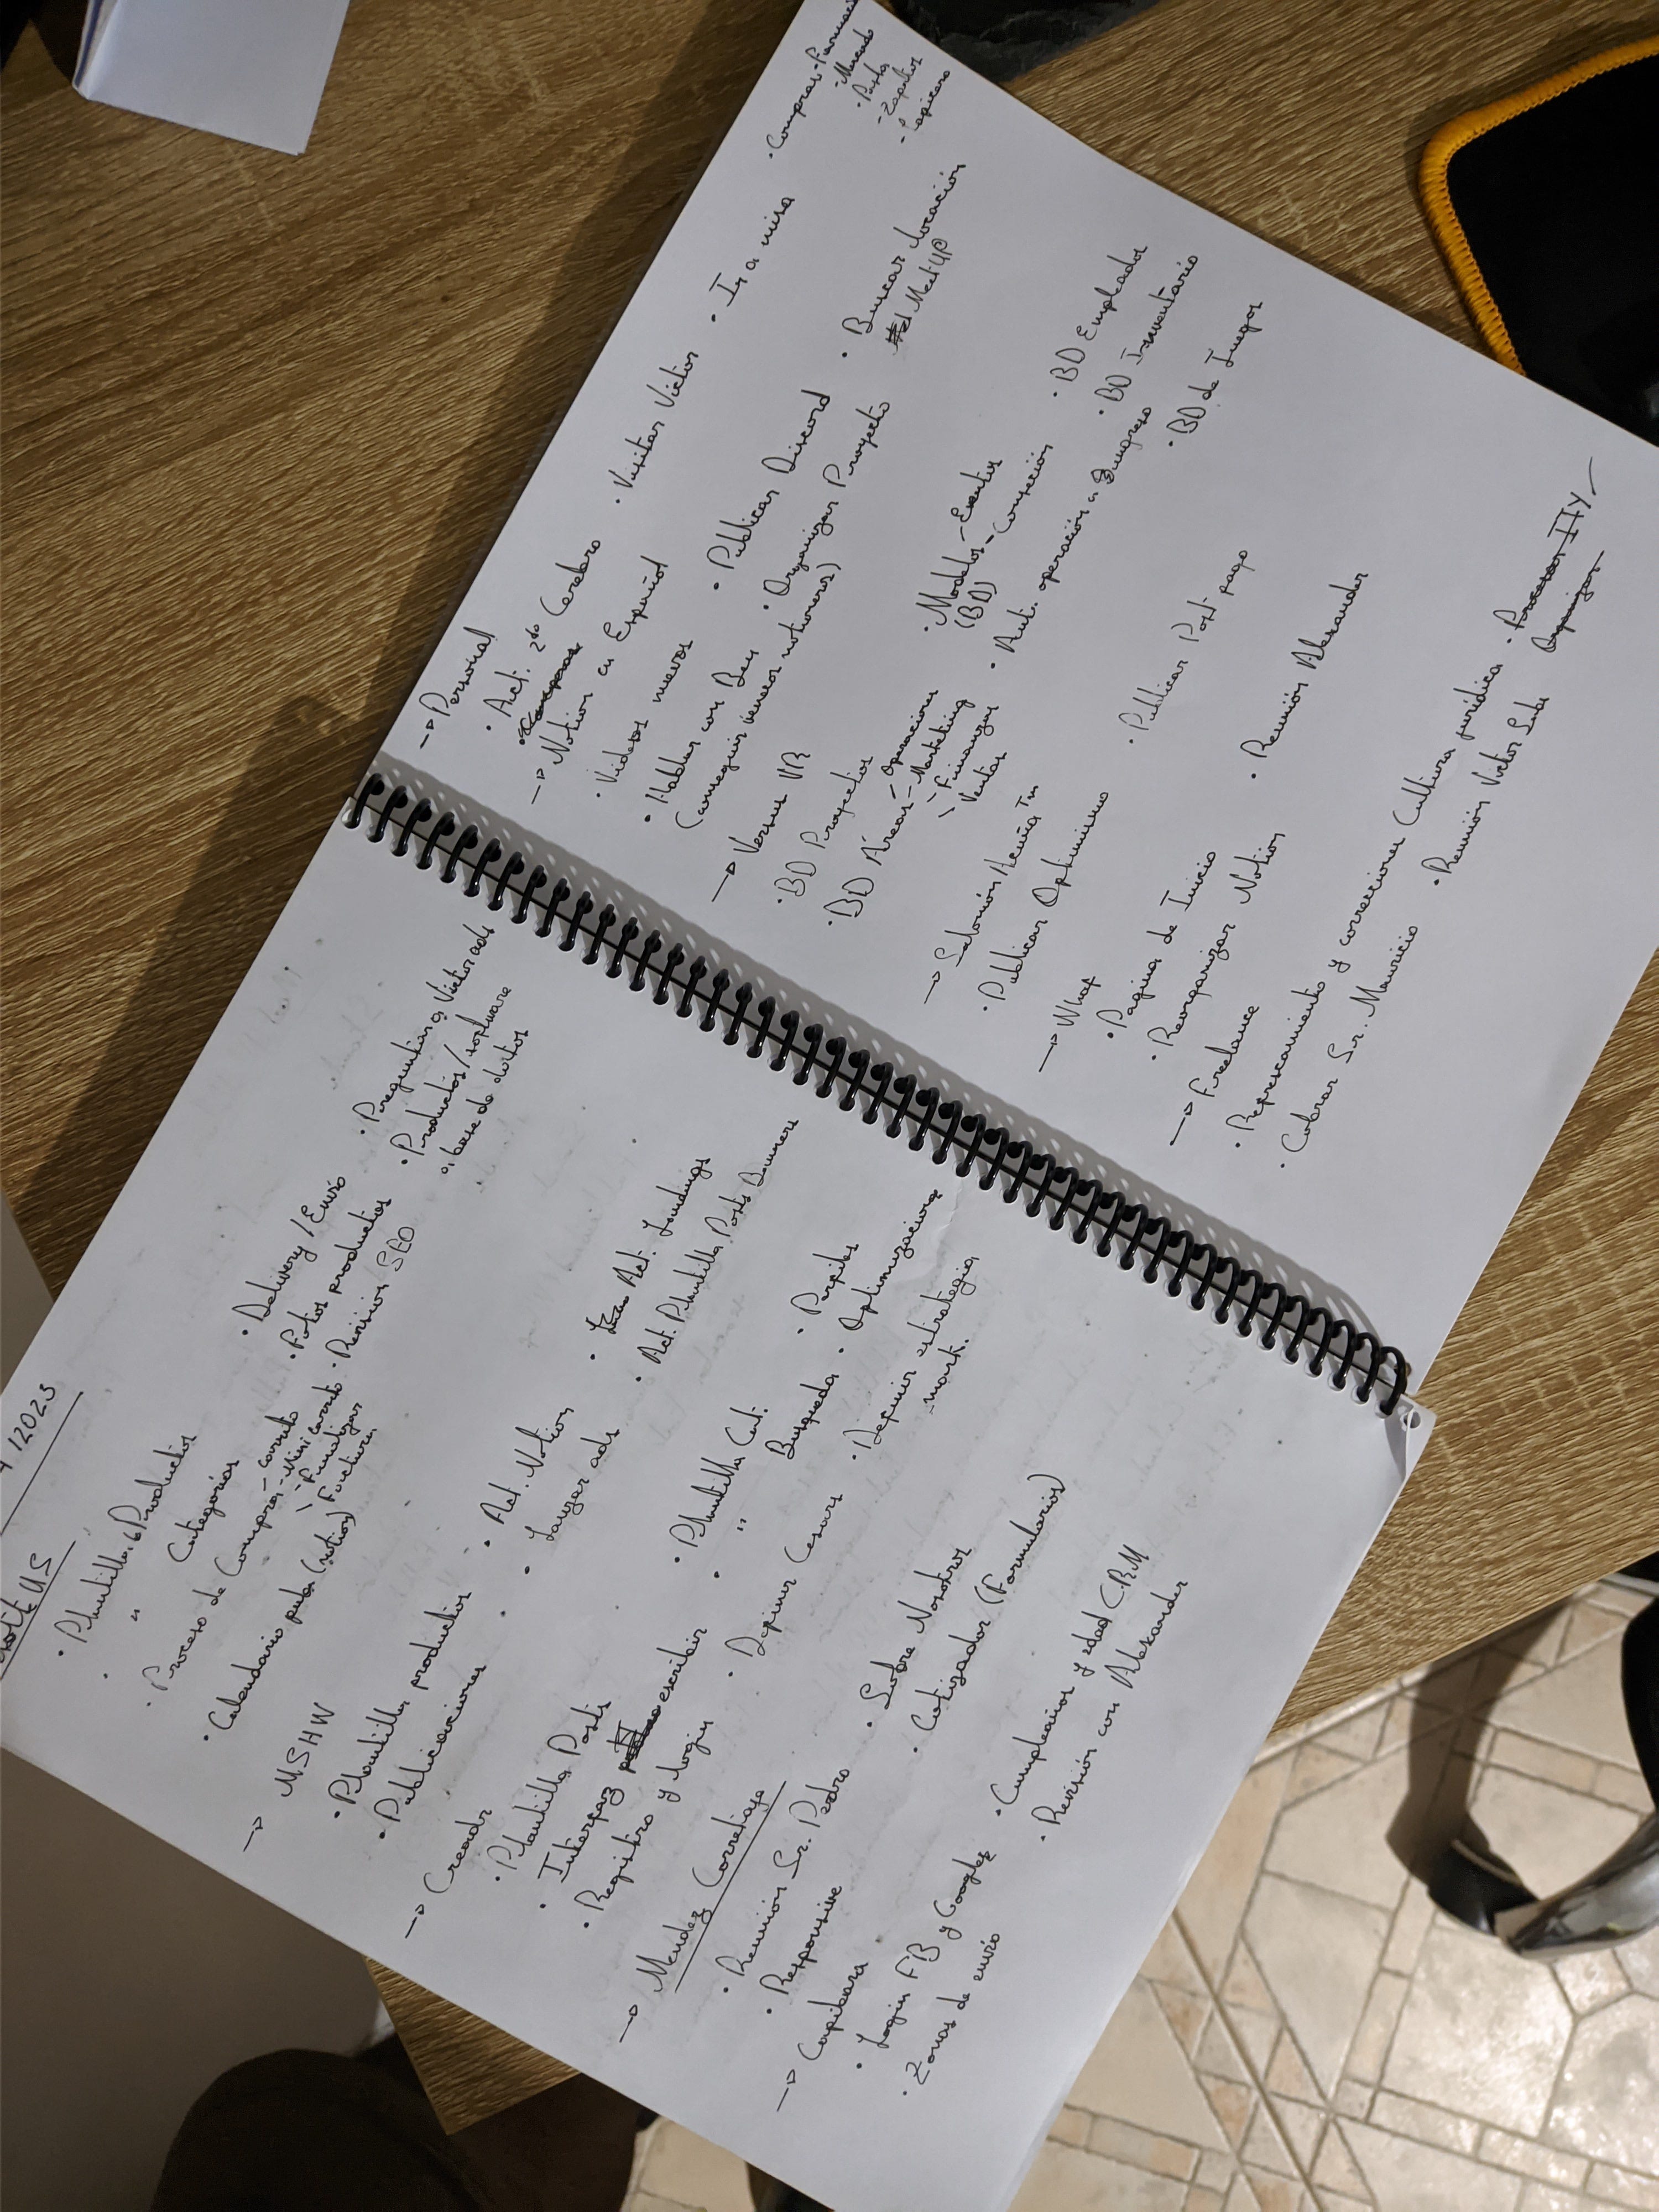 /2023
US
· Plantilla Productos
· " Categorías
· Proceso de Compra - carrito
- Mini carrito
- Finalizar
- Factura
· Calendario pub. (notion)
· Delivery / Envío
· Fotos productos
· Revisión SEO
· Preguntar a Victor ads
· Productos / software
a base de datos
→ MSHW
· Plantilla productos
· Publicaciones
· Act. Notion
· Lanzar ads
· Act. Landings
· Act. Plantilla Posts Banners
→ Creadr
· Plantilla Posts
· Interfaz escribir
· Registro y login
· Plantilla Cat.
· " Búsqueda
· Definir Cesars
· Perfiles
· Optimizaciones
· Definir estrategia
mark.
→ Mendez Corretaje
· Reunión Sr. Pedro
· Responsive
· Sobre Nosotros
· Cotizador (Formularios)
→ Capibara
· Login FB y Google
· Zonas de envío
· Cumpleaños y edad CRM
· Revisión con Alexander
→ Personal
· Act. 2do Cerebro
· Visitar Victor
· Ir a misa
· Compras - Farmacia
- Mercado
- Zapatos
→ Notion en Español
· Videos nuevos
· Hablar con Dey
(conseguir venezo notioneros)
· Publicar Discord
· Organizar Proyecto
· Buscar locación
#1 MeetUP
→ Versus VR
· BD Proyectos
· BD Áreas - Operaciones
- Marketing
- Finanzas
- Ventas
· Modelos - Eventos
(BD) - Conexión
· Aut. operación a Ingreso
· BD Empleados
· BD Inventario
· BD de Juegos
→ Salomón
· Publicar Optimismo
· Publicar Post pago
→ What
· Pagina de Inicio
· Reorganizar Notion
· Reunión Alexander
→ Freelance
· Representamiento y correcciones Cultura jurídica
· Cobrar Sr. Mauricio
· Reunión Victor
Organizar